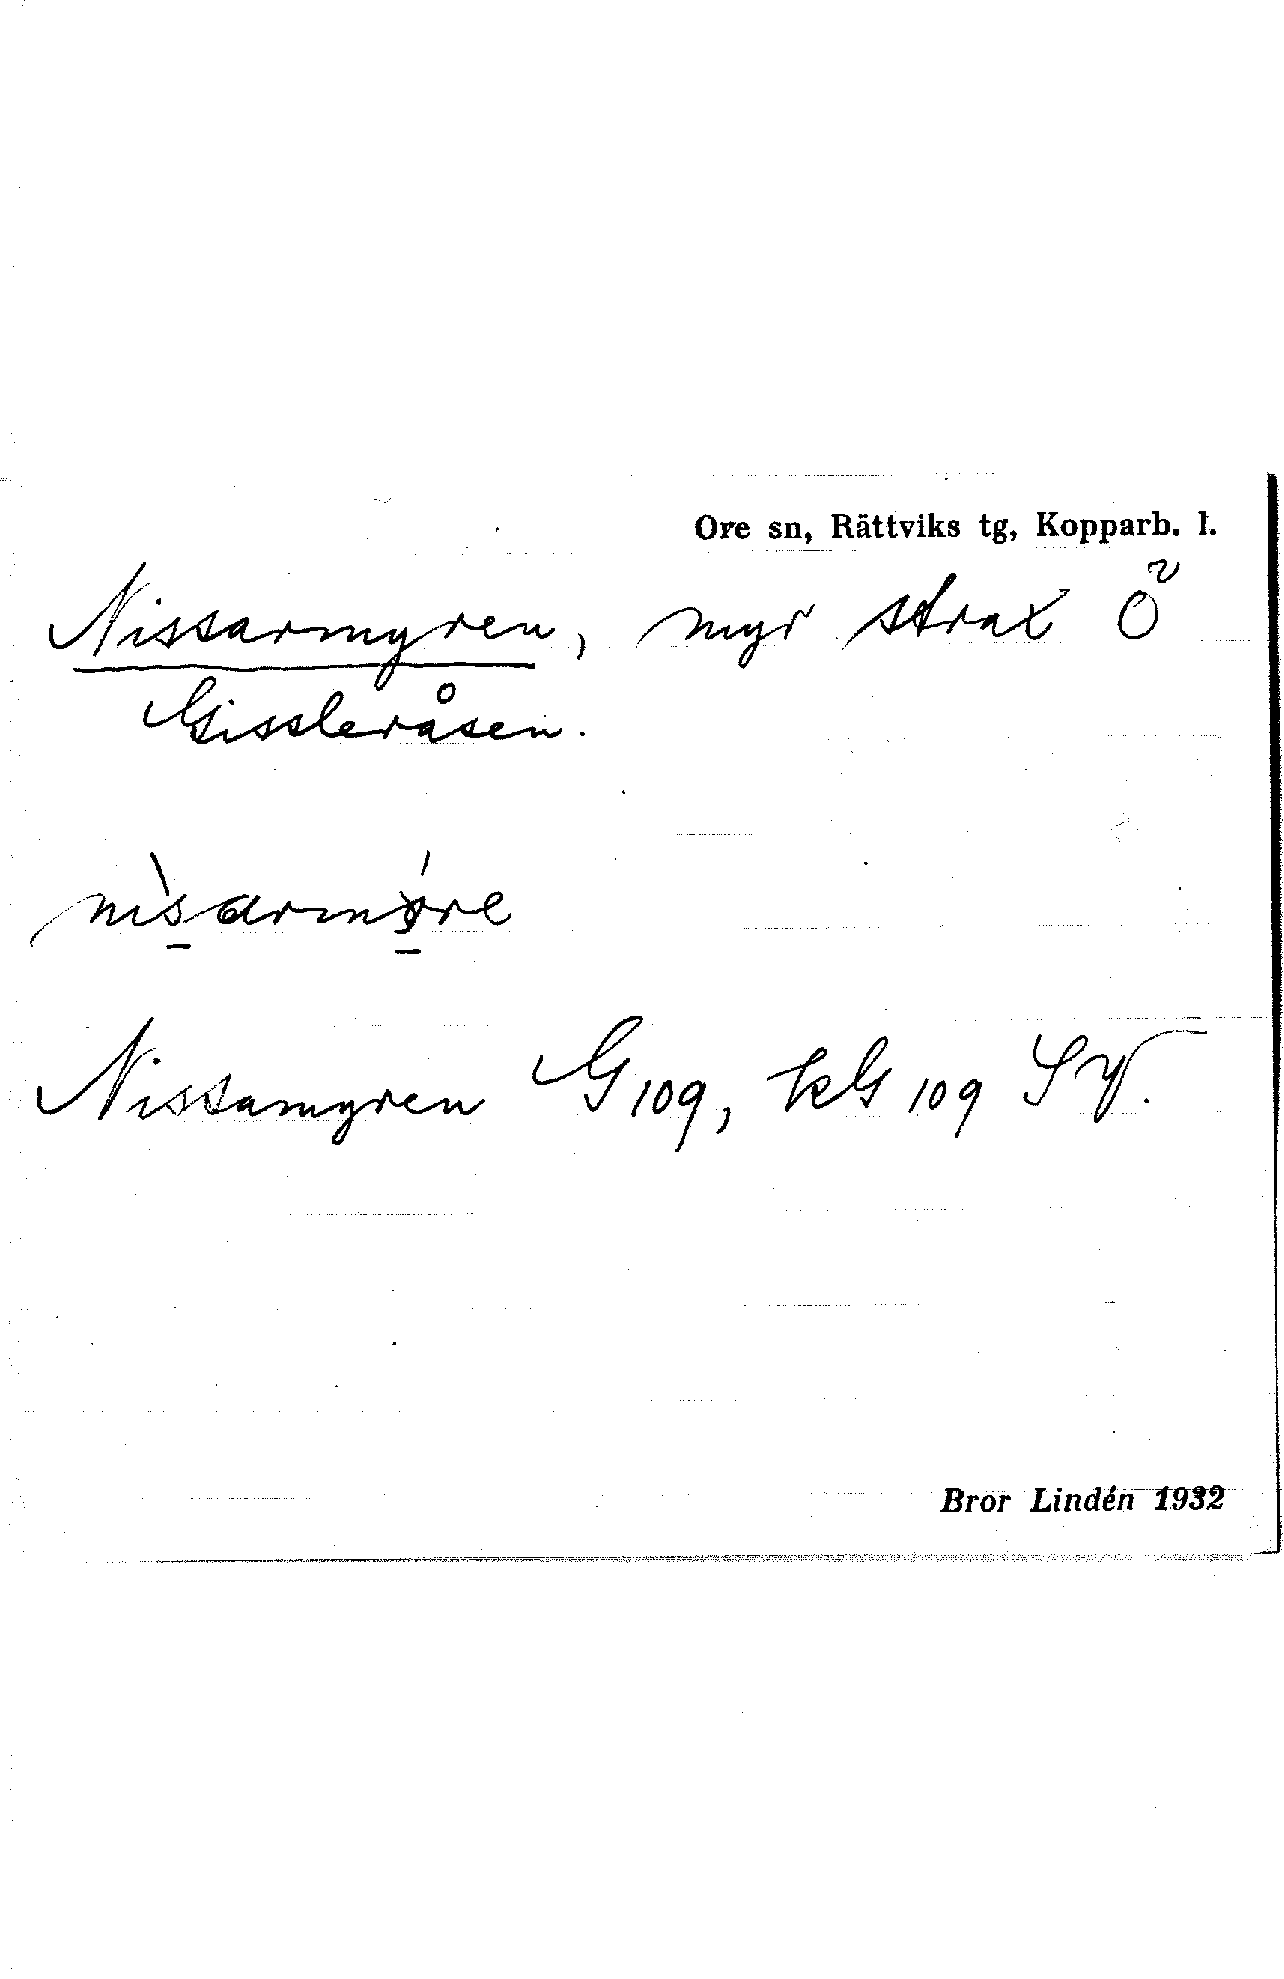 Ore sn, Rättviks tg, Kopparb. l.
Nissarmyren, myr strax Ö
Gissleråsen.
Nissamyren G109, kG 109 SV.
Bror Lindén 1932